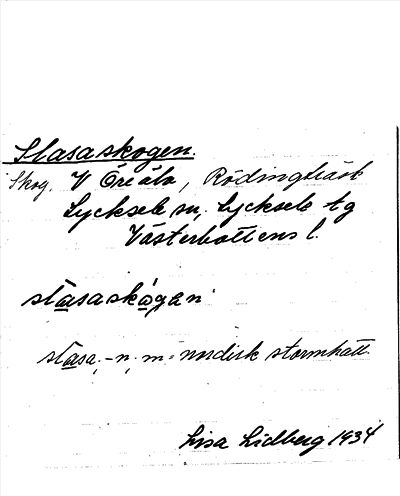 Stasaskogen.
Skog. V Öreälv, Rödingträsk
Lycksele sn, Lycksele tg
Västerbottens l.
stasaskógan
stasa, -n, m = nordisk stormhatt.
Lisa Lidberg 1934